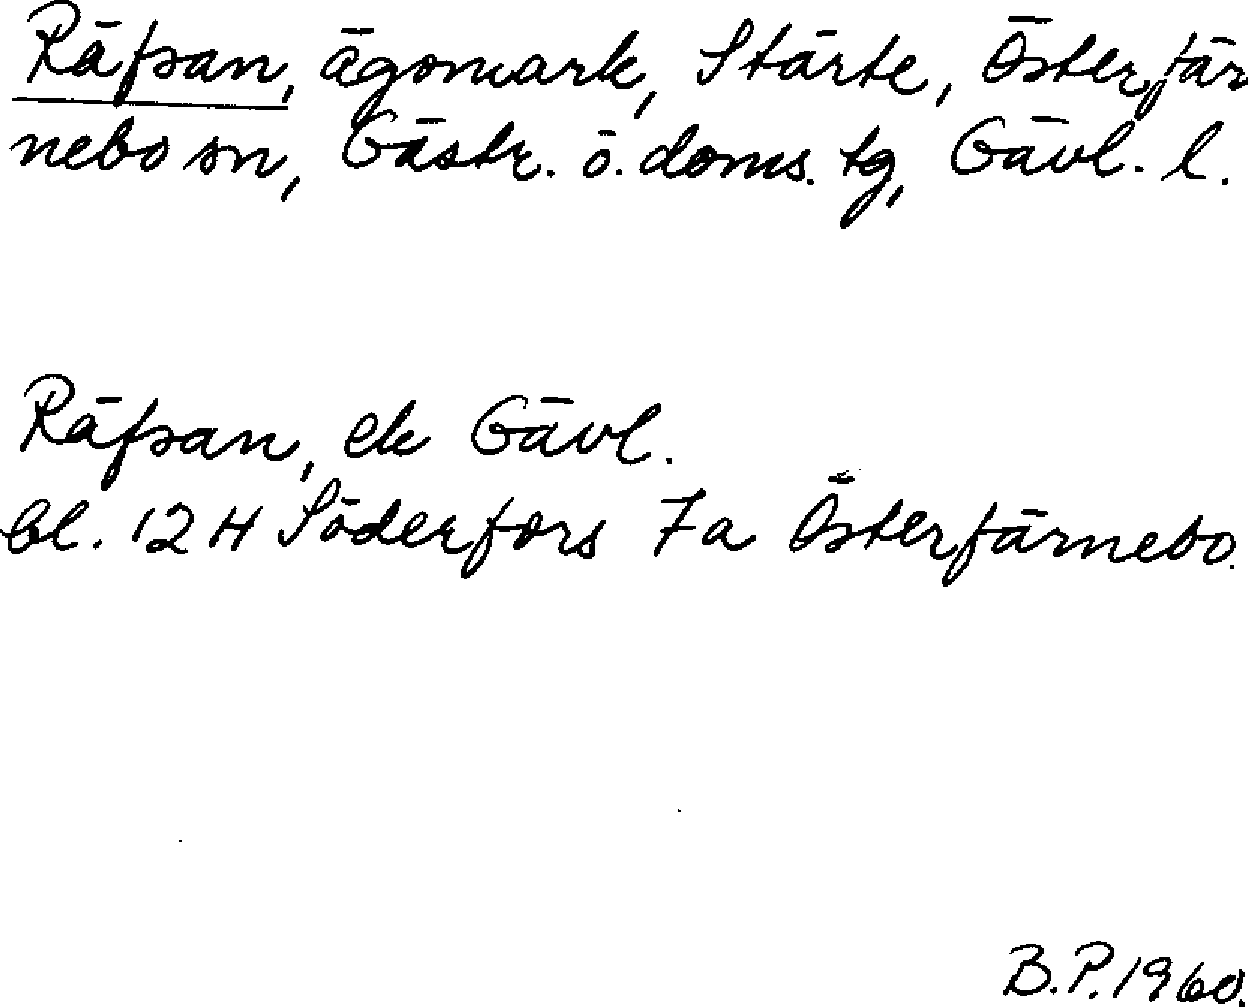 Räfsan, ägomark, Stärte, Österfär
nebo sn, Gästr. ö. doms. tg, Gävl. l.
Räfsan, ek Gävl.
bl. 12 H Söderfors 7a Österfärnebo.
B.P. 1960.